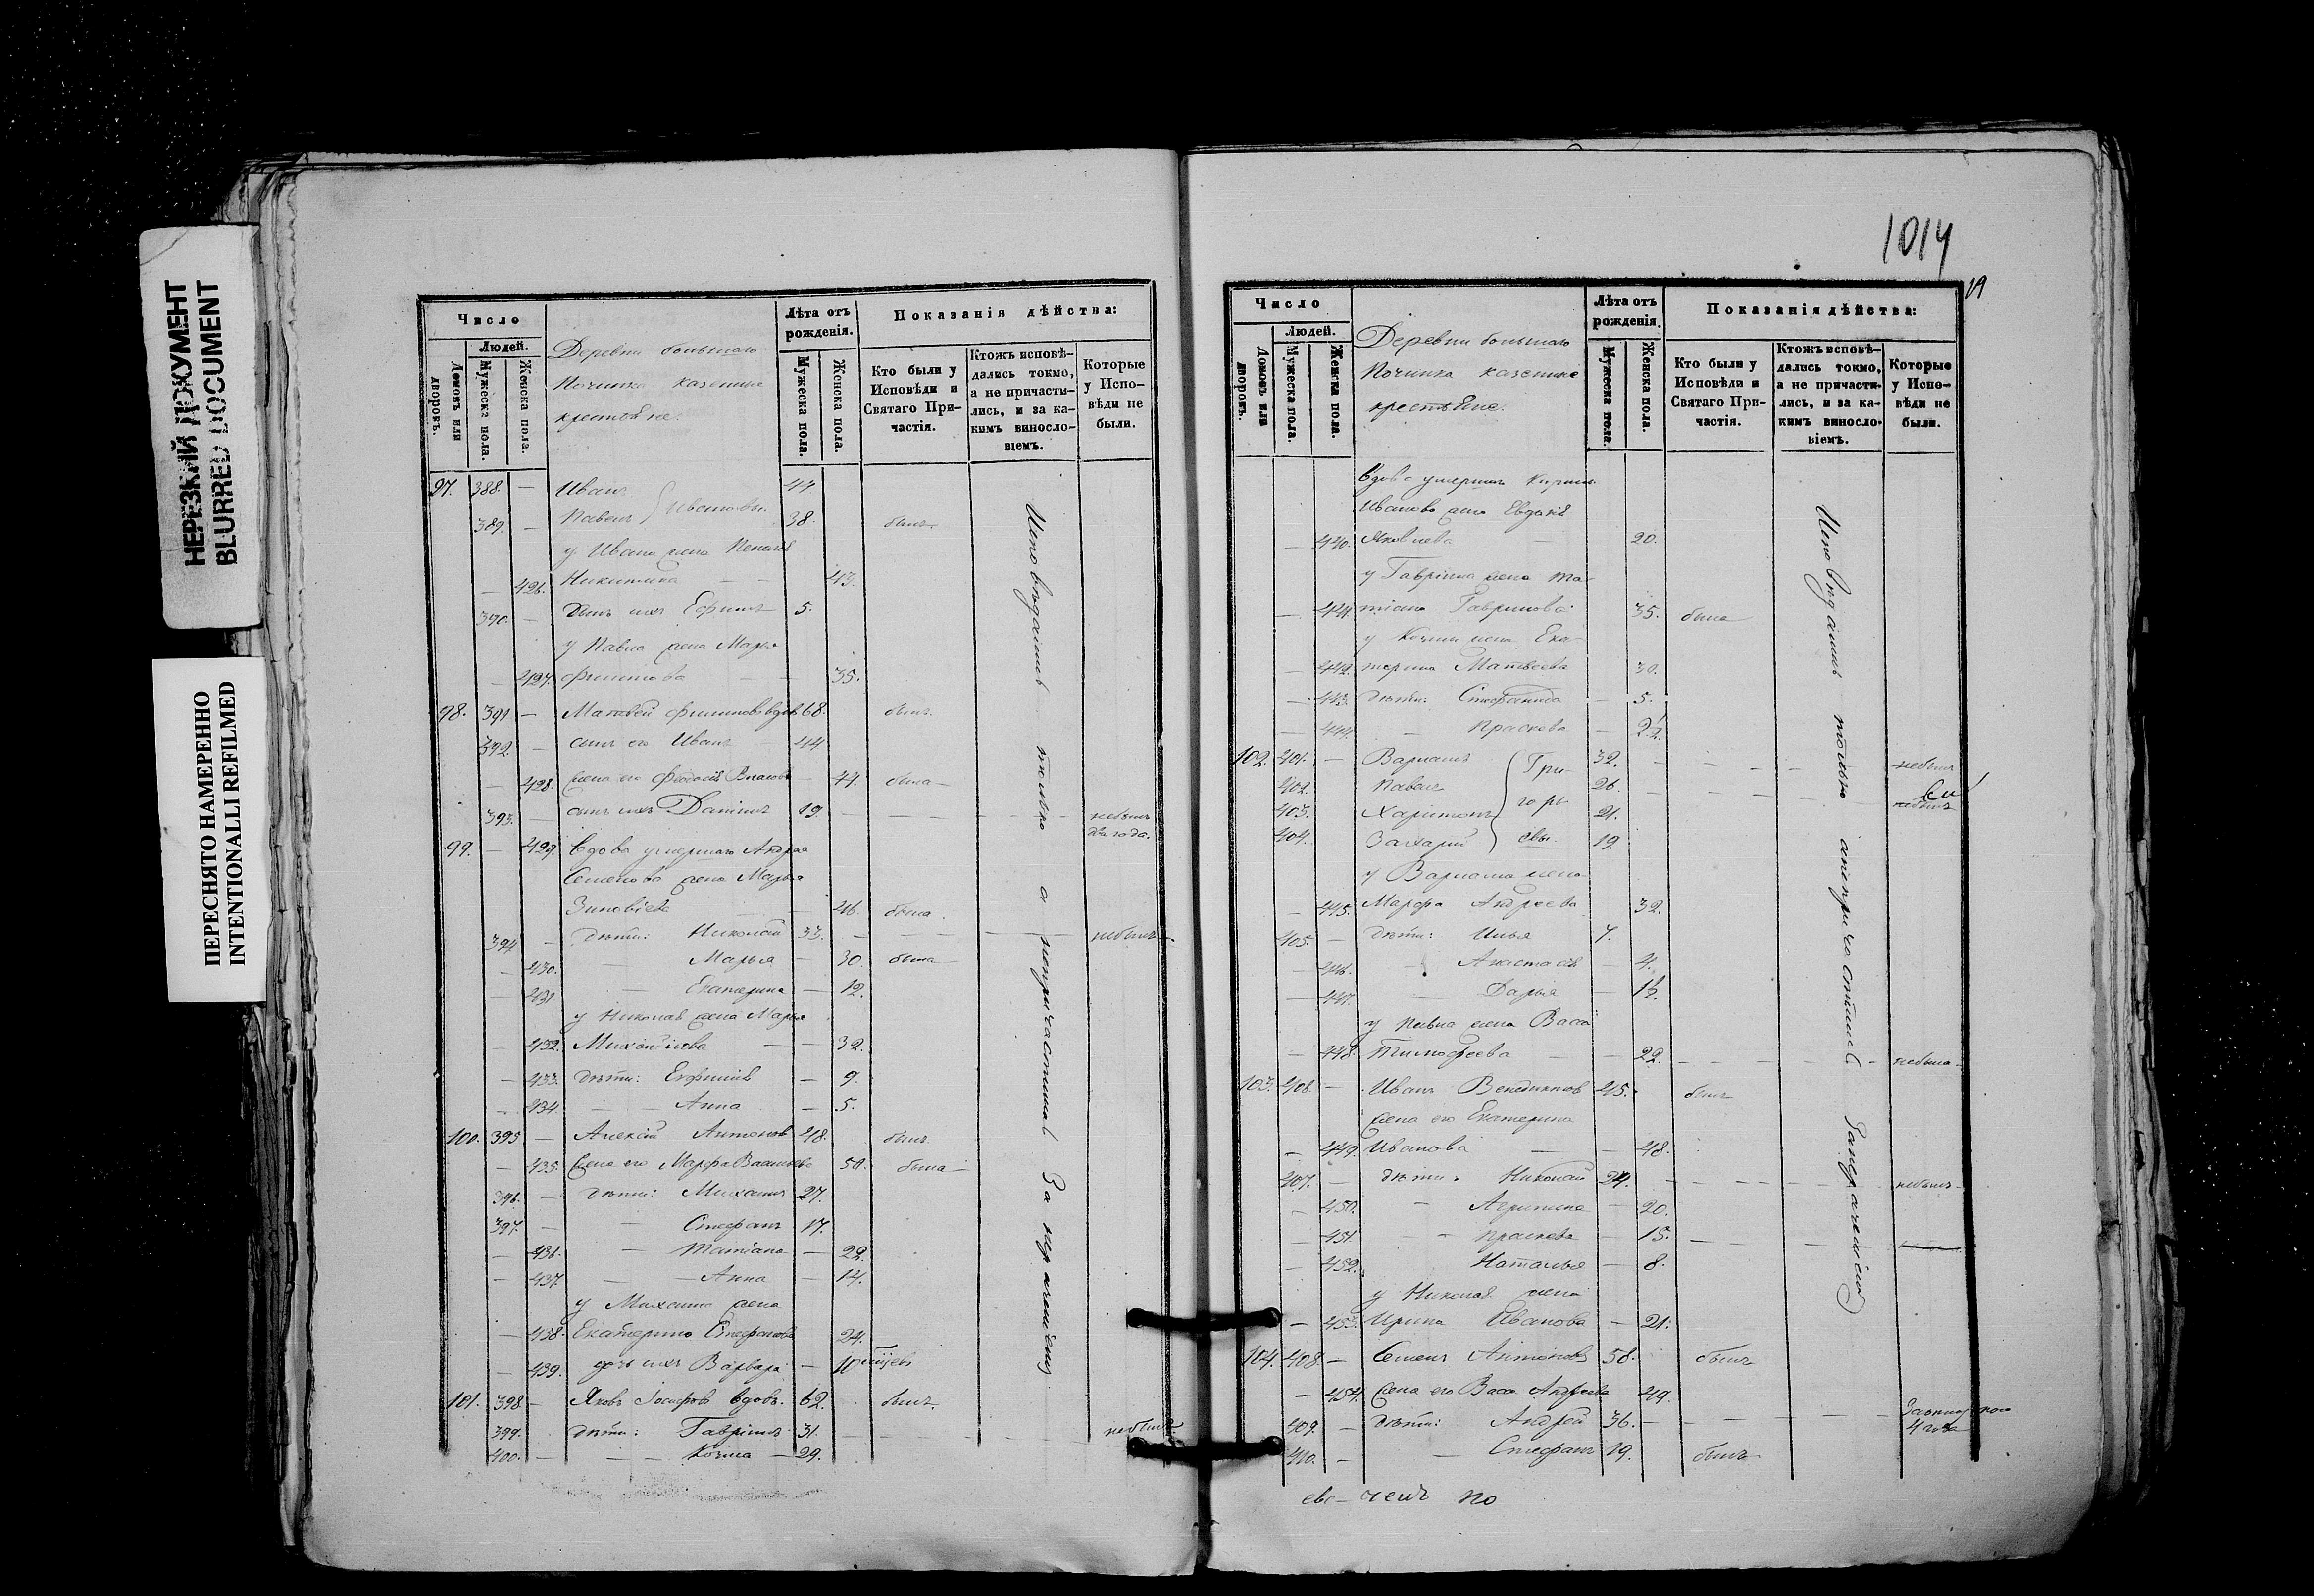 НЕРЕЗКИЙ ДОКУМЕНТ
BLURRED DOCUMENT
ПЕРЕСНЯТО НАМЕРЕННО
INTENTIONALLI REFILMED
Число
Людей.
Домовъ или дворовъ.
Мужеска пола.
Женска пола.
Деревни большаго
Починка казенные
крестьяне.
Лѣта отъ рожденія.
Мужеска пола.
Женска пола.
Показанія дѣйства:
Кто были у Исповѣди и Святаго Причастія.
Ктожъ исповѣдались токмо, а не причастились, и за какимъ винословіемъ.
Которые у Исповѣди не были.
97. 388. — Иванъ 47
389. — Павелъ } Ивановы. 38. былъ
у Ивана жена
— 426. Никитина — — 43.
390. — сынъ ихъ Ефимъ 5.
у Павла жена Марья
— 427. Филипова — — 35.
98. 391 — Матвей Филиповъ вдовъ 68. былъ
392. — сынъ его Иванъ — 44
— 428. жена его Власова — 44. была —
393. — сынъ ихъ Даниилъ 19. — — — — — небылъ два года.
99. — 429. Вдова умершаго Андрея
Семенова жена Марья
Зиновіева — — 46. была.
394 — дѣти: Николай 33. — — — — небылъ
— 430. — Марья — 30. была —
— 431 — Екатерина — 12.
у Николая жена Марья
— 432. Михайлова — — 32.
— 433. дѣти: Евфимія — 9.
— 434. — — Анна — 5.
100. 395 — Алексій Антоновъ 48. былъ
— 435. жена его Марфа Васильева 50. была —
396. — дѣти: Михаилъ 27.
397. — — Стефанъ 17.
— 436. — Татіана — 22.
— 437. — — Анна — 14.
у Михаила жена
— 438. Екатерина Стефанова 24.
— 439. дочь ихъ Варвара — 10
101. 398. — Яковъ Іосифовъ вдовъ. 62. былъ.
399. дѣти: Гавріилъ 31. — — — — небылъ
400. — — — Козма — 29.
Исповѣдались только а непричастились За нерачениемъ
1014
19
Число
Людей.
Домовъ или дворовъ.
Мужеска пола.
Женска пола.
Деревни большаго
Починка казенные
крестьяне.
Лѣта отъ рожденія.
Мужеска пола.
Женска пола.
Показанія дѣйства:
Кто были у Исповѣди и Святаго Причастія.
Ктожъ исповѣдались токмо, а не причастились, и за какимъ винословіемъ.
Которые у Исповѣди не были.
Вдова умершаго Кирила
Иванова жена Евдокія
— 440. Яковлева — 20.
у Гавріила жена Та-
— 441. тіана Гаврилова 35. была
у Козмы жена Ека-
— 442. терина Матвеева 30.
— 443. дѣти: Стефанида — 5.
— 444. — Праскева — 2½.
102. 401. — Варлаамъ 32. — — — — небылъ
402. Павелъ 26. — — — — небылъ
403. Харитонъ 21.
404. Захарій 19.
} Григорьевы.
у Варлаама жена
— 445. Марфа Андреева 32.
405. — дѣти: Илья 7.
— 446. — Анастасія — 4.
— 447. — Дарья — 1½.
у Павла жена Васса
— 448. Тимофеева — — 22. — — — — небыла
103. 406. — Иванъ Венедиктовъ 45. былъ
жена его Екатерина
— 449. Иванова — — 48.
407. — дѣти: Николай 24. — — — — небылъ
— 450. — Агрипина — 20.
— 451 — — Праскева — 15. — — —
— 452. Наталья — 8.
у Николая жена
— 453. Ирина Иванова — 21.
104. 408. — Семенъ Антоновъ 58. былъ
— 454. жена его Васса Андреева 49.
409. — дѣти: Андрей 36. — — — — 4 года
410. — — Стефанъ 19. былъ
Исповѣдались только анепричастились